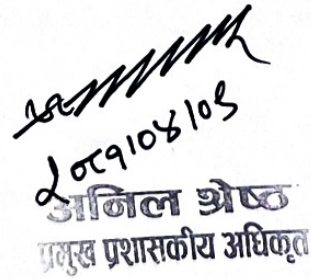 २०८१।०४।०३
अनिल श्रेष्ठ
प्रमुख प्रशासकीय अधिकृत